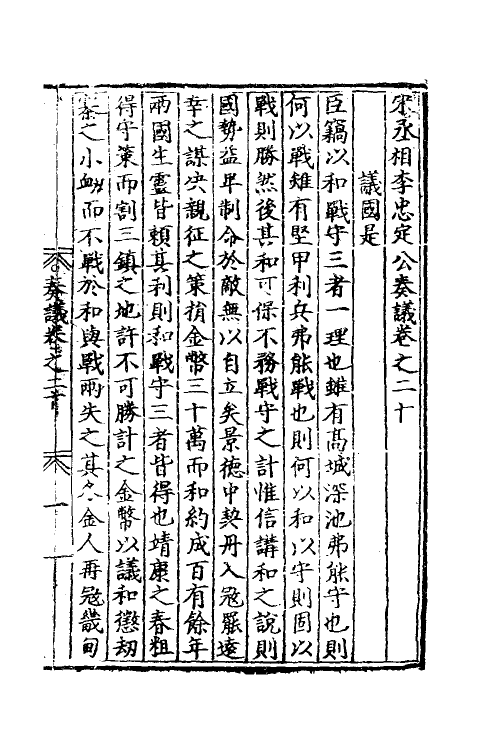 宋丞相李忠定公奏議卷之二十
議國是
臣竊以和戰守三者一理也雖有髙城深池弗能守也則
何以戰雖有堅甲利兵弗能戰也則何以和以守則固以
戰則勝然後其和可保不務戰守之計惟信講和之說則
國勢益卑制命於敵無以自立矣景德中契丹入冦罷逺
幸之謀决親征之策捐金幣三十萬而和約成百有餘年
兩國生靈皆頼其利則和戰守三者皆得也靖康之春粗
得守策而割三鎮之地許不可勝計之金幣以議和懲劫
寨之小衂而不戰於和與戰兩失之其冬金人再冦畿甸
奏議卷之二十
一